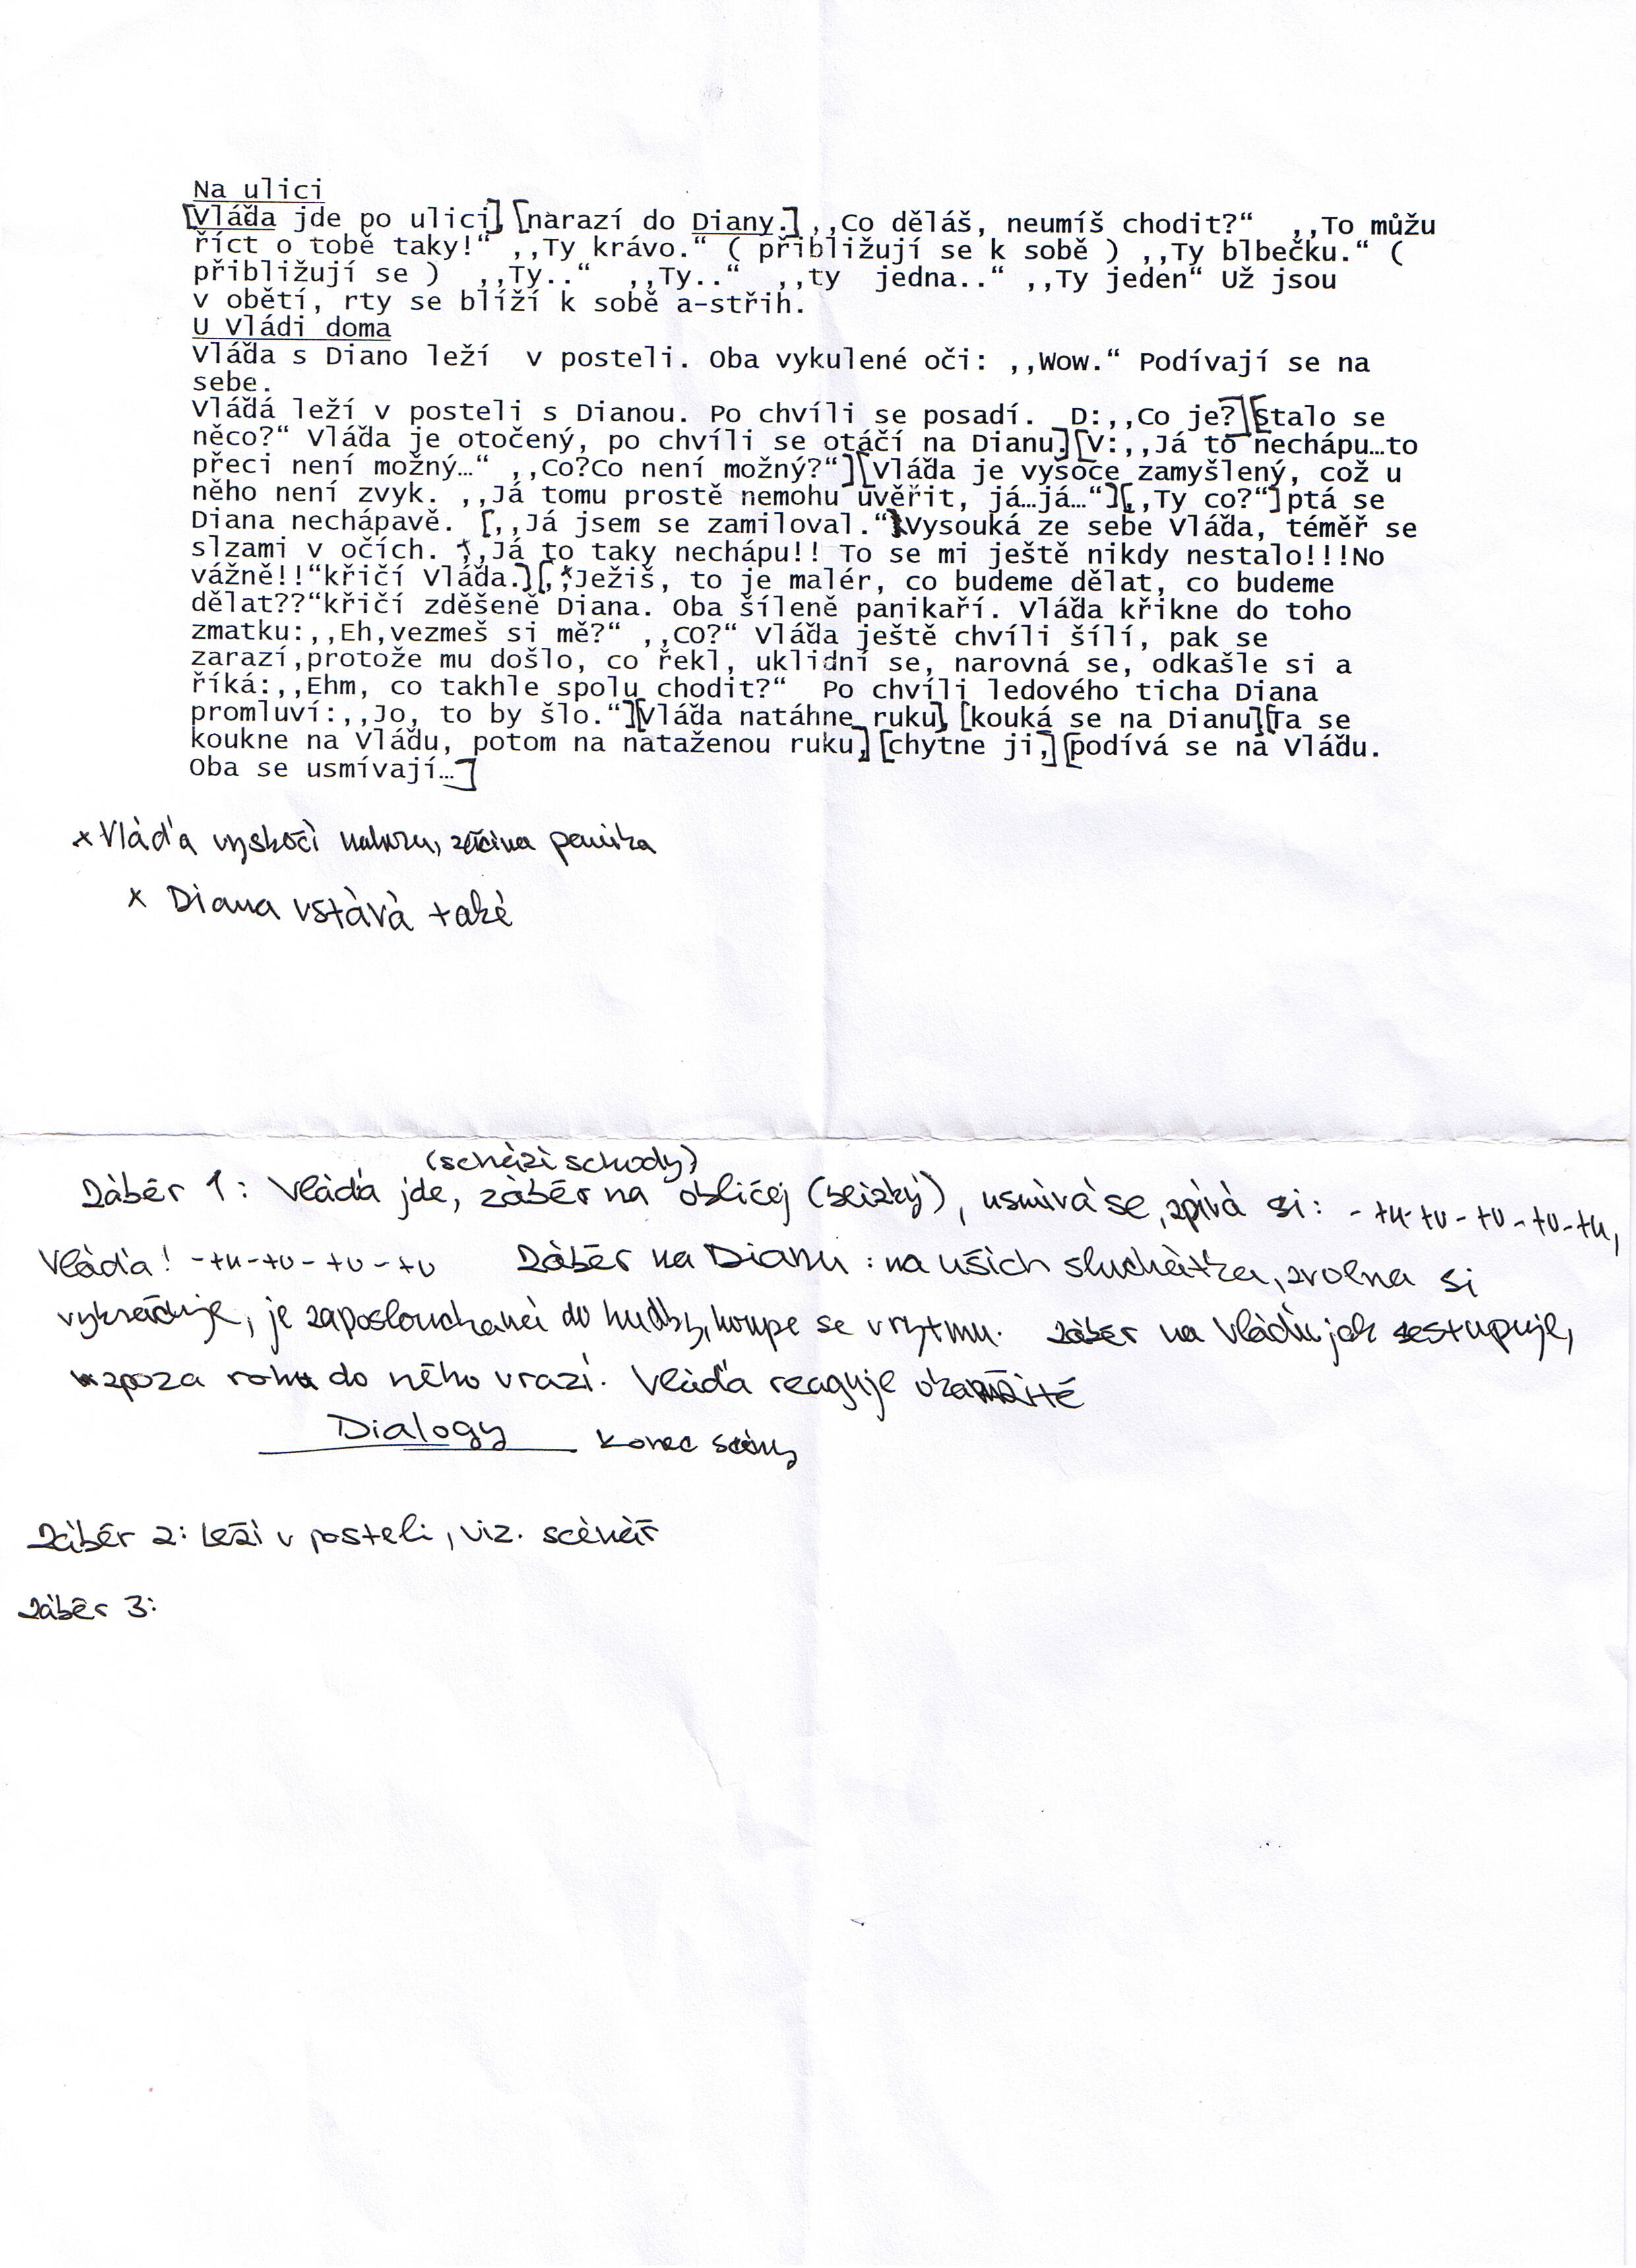 Na ulici
[Vláďa jde po ulici], [narazí do Diany.] ,,Co děláš, neumíš chodit?“ ,,To můžu
říct o tobě taky!“ ,,Ty krávo.“ ( přibližují se k sobě ) ,,Ty blbečku.“ (
přibližují se ) ,,Ty..“ ,,Ty..“ ,,ty jedna..“ ,,Ty jeden“ Už jsou
v obětí, rty se blíží k sobě a-střih.
U Vládi doma
Vláďa s Diano leží v posteli. Oba vykulené oči: ,,Wow.“ Podívají se na
sebe.
Vláďá leží v posteli s Dianou. Po chvíli se posadí. D:,,Co je?][Stalo se
něco?“ Vláďa je otočený, po chvíli se otáčí na Dianu.][V:,,Já to nechápu…to
přeci není možný…“ ,,Co?Co není možný?“][Vláďa je vysoce zamyšlený, což u
něho není zvyk. ,,Já tomu prostě nemohu uvěřit, já…já…“][,,Ty co?“]ptá se
Diana nechápavě. [,,Já jsem se zamiloval.“]Vysouká ze sebe Vláďa, téměř se
slzami v očích. x,,Já to taky nechápu!! To se mi ještě nikdy nestalo!!!No
vážně!!“křičí Vláďa.][,,xJežiš, to je malér, co budeme dělat, co budeme
dělat??“křičí zděšeně Diana. Oba šíleně panikaří. Vláďa křikne do toho
zmatku:,,Eh,vezmeš si mě?“ ,,CO?“ Vláďa ještě chvíli šílí, pak se
zarazí,protože mu došlo, co řekl, uklidní se, narovná se, odkašle si a
říká:,,Ehm, co takhle spolu chodit?“ Po chvíli ledového ticha Diana
promluví:,,Jo, to by šlo.“][Vláďa natáhne ruku], [kouká se na Dianu][Ta se
koukne na Vláďu, potom na nataženou ruku,] [chytne ji,] [podívá se na Vláďu.
Oba se usmívají…]
x Vláďa vyskočí nahoru, začíná panika
x Diana vstává také
(schází schody)
Záběr 1: Vláďa jde, záběr na obličej (blízký), usmívá se, zpívá si: - tu-tu-tu-tu-tu,
Vláďa! -tu-tu-tu-tu Záběr na Dianu: na uších sluchátka, zvolna si
vykračuje, je zaposlouchaná do hudby, houpe se v rytmu. Záběr na Vláďu jak sestupuje,
zpoza rohu do něho vrazí. Vláďa reaguje okamžitě
Dialogy konec scény
Záběr 2: Leží v posteli, viz. scénář
Záběr 3: